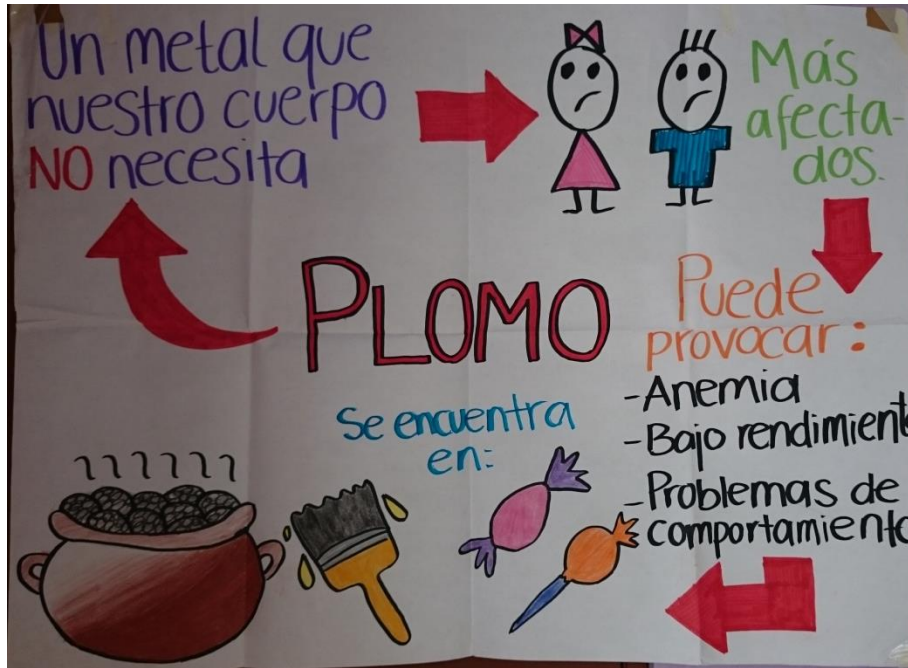 Un metal que
nuestro cuerpo
NO necesita
Más
afecta-
dos.
PLOMO
Puede
provocar:
- Anemia
- Bajo rendimient
- Problemas de
comportamiento
Se encuentra
en: